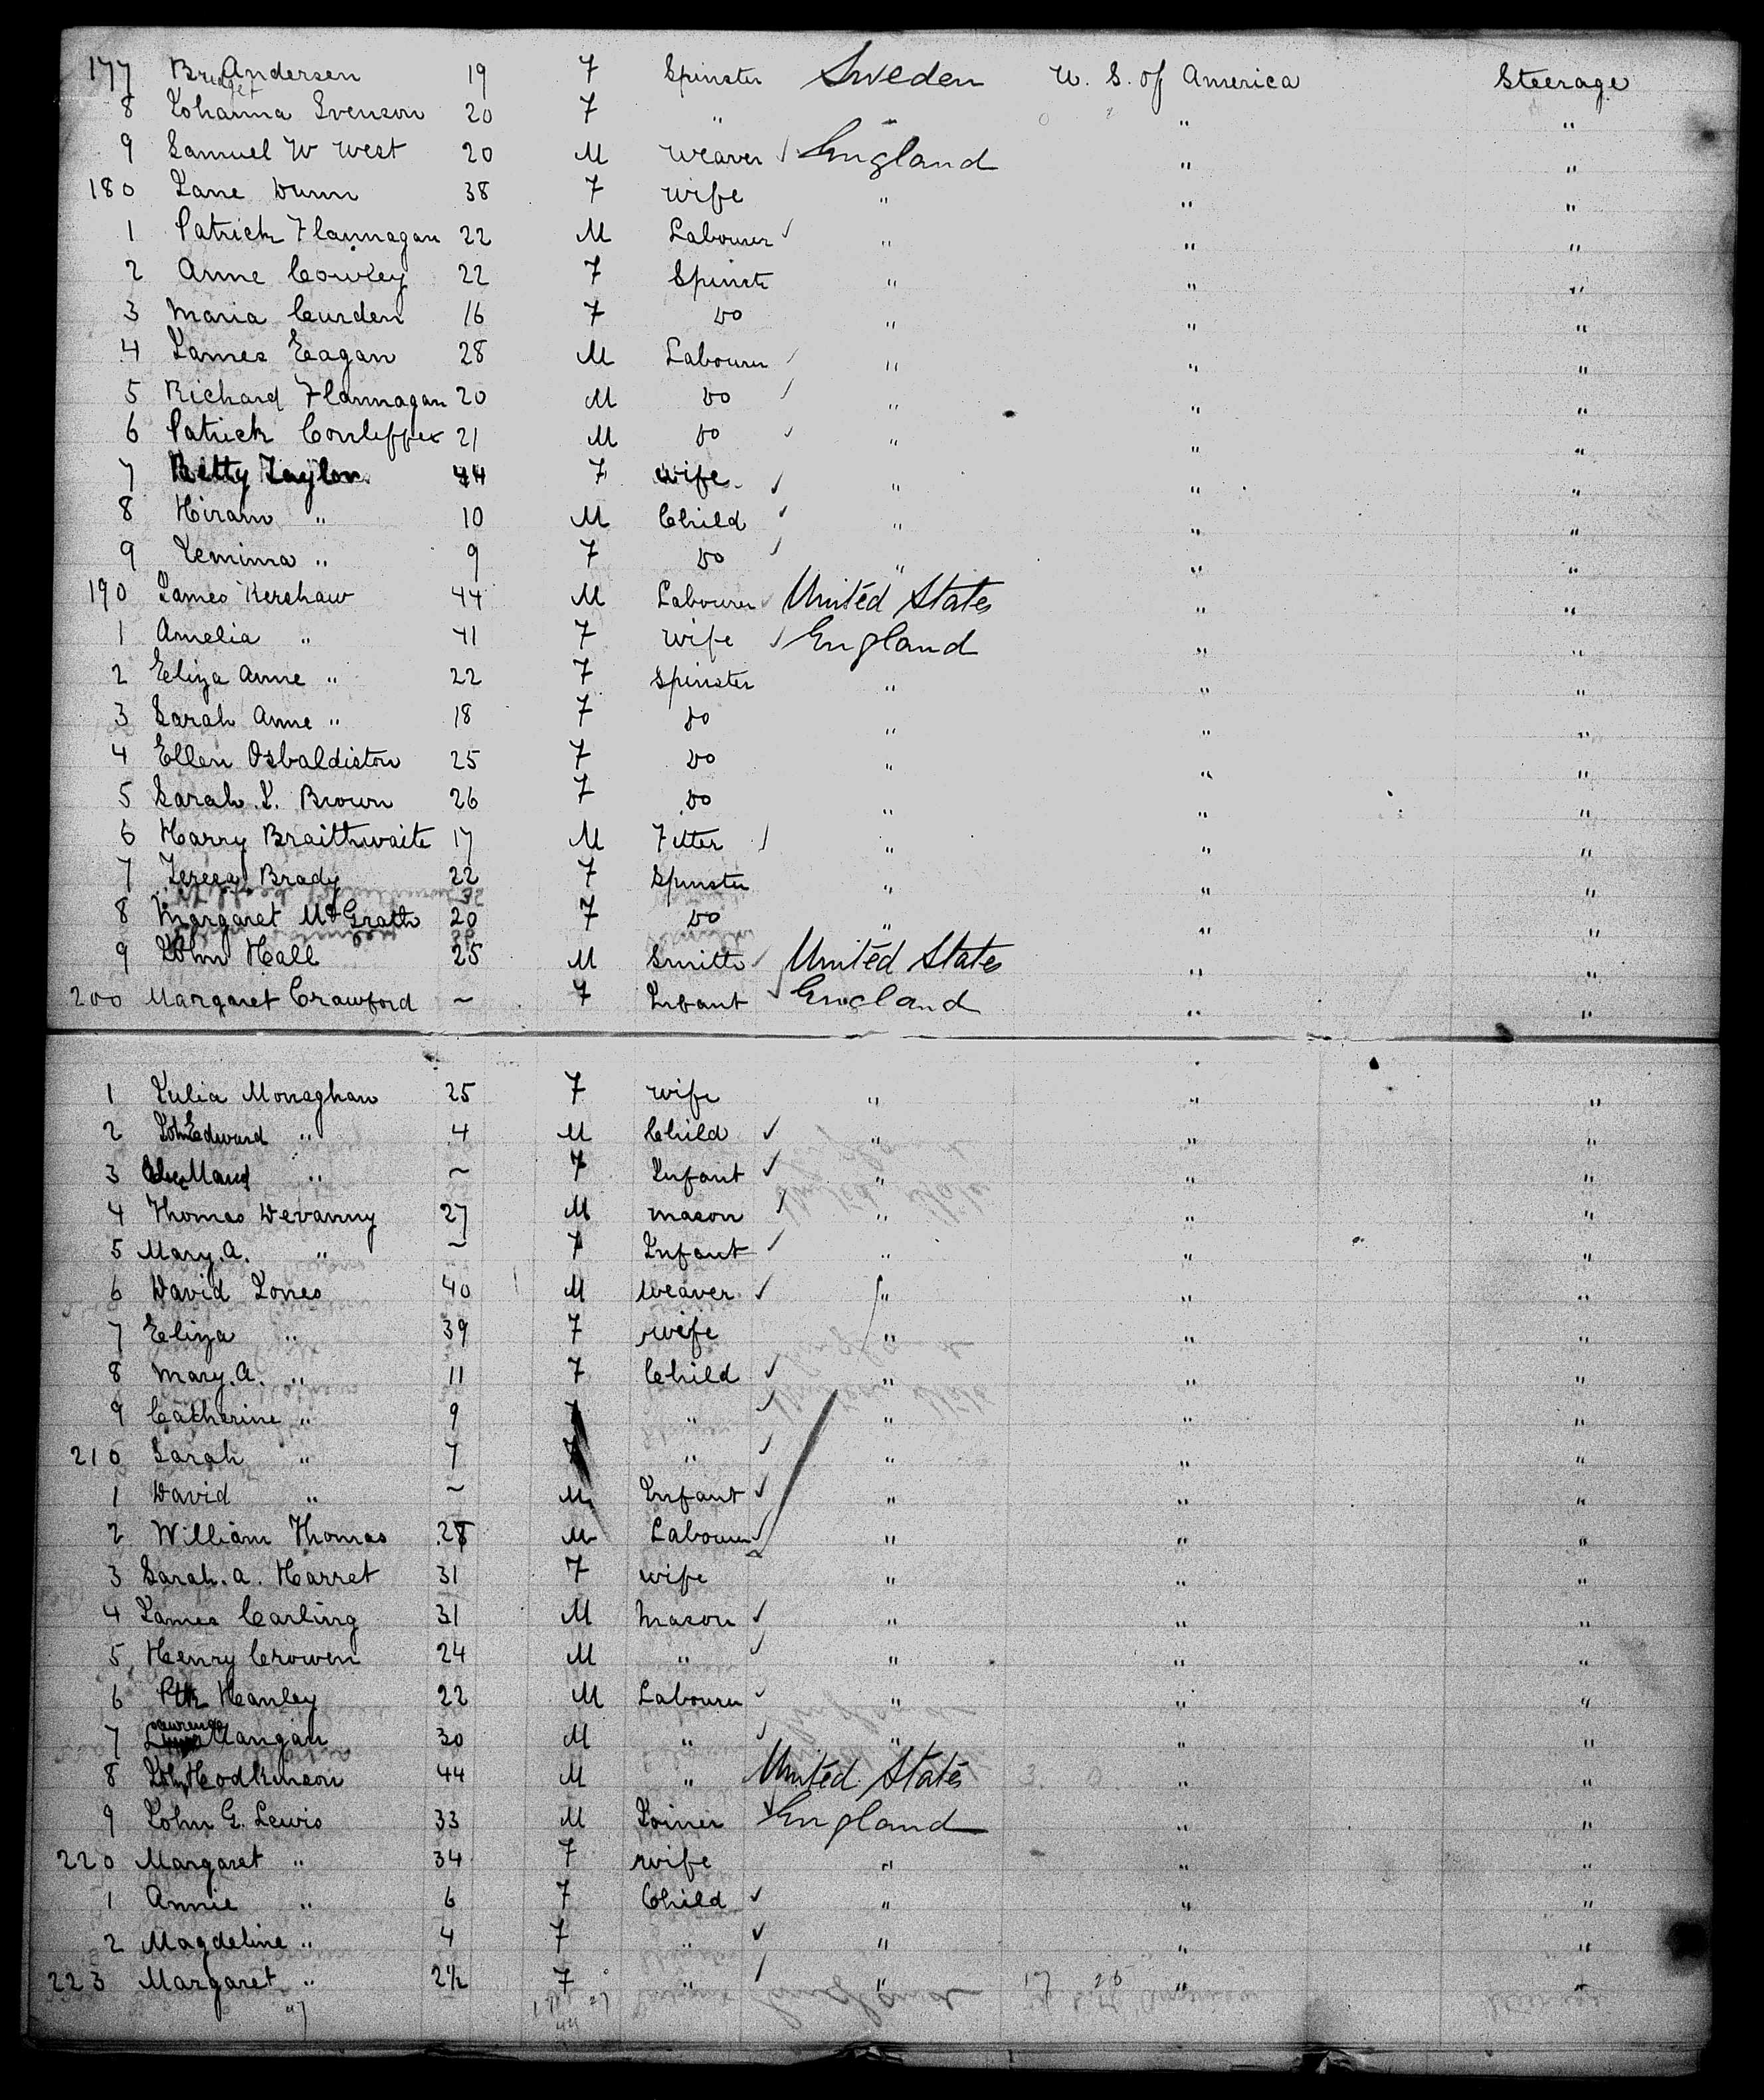 177 Bridget Andersen 19 F Spinster Sweden U. S. of America Steerage
8 Johanna Svenson 20 F " " "
9 Samuel W West 20 M Weaver England " "
180 Jane Dunn 38 F Wife " " "
1 Patrick Flannagan 22 M Labourer " " "
2 Anne Cowley 22 F Spinste " " "
3 Maria Curden 16 F Do " " "
4 James Eagan 28 M Labourer " " "
5 Richard Flannagan 20 M Do " " "
6 Patrick 21 M Do " " "
7 Betty Taylor 44 F Wife " " "
8 Hiram " 10 M Child " " "
9 Jemima " 9 F Do " " "
190 James Kershaw 44 M Labourer United States " "
1 Amelia " 41 F Wife England " "
2 Eliza Anne " 22 F Spinster " " "
3 Sarah Anne " 18 F Do " " "
4 Ellen Osbaldiston 25 F Do " " "
5 Sarah J. Brown 26 F Do " " "
6 Harry Braithwaite 17 M Fitter " " "
7 Teresa Brady 22 F Spinster " " "
8 Margaret McGrath 20 F Do " " "
9 John Hall 25 M Smith United States " "
200 Margaret Crawford ~ F Infant England " "
1 Julia Monaghan 25 F Wife " " "
2 John Edward " 4 M Child " " "
3 Maud " ~ F Infant " " "
4 Thomas Devanny 27 M Mason " " "
5 Mary. A. " ~ F Infant " " "
6 David Jones 40 M Weaver " " "
7 Eliza " 39 F Wife " " "
8 Mary. A. " 11 F Child " " "
9 Catherine " 9 F " " " "
210 Sarah " 7 F " " " "
1 David " ~ M Infant " " "
2 William Thomas 28 M Labourer " " "
3 Sarah. A. Harret 31 F Wife " " "
4 James Carling 31 M Mason " " "
5 Henry Crowen 24 M " " " "
6 Ptk Hanley 22 M Labourer " " "
7 Lawrence Mangan 30 M " " " "
8 John Hodkinson 44 M " United States " "
9 John G. Lewis 33 M Joiner England " "
220 Margaret " 34 F Wife " " "
1 Annie " 6 F Child " " "
2 Magdeline " 4 F " " " "
223 Margaret " 2½ F " " " "